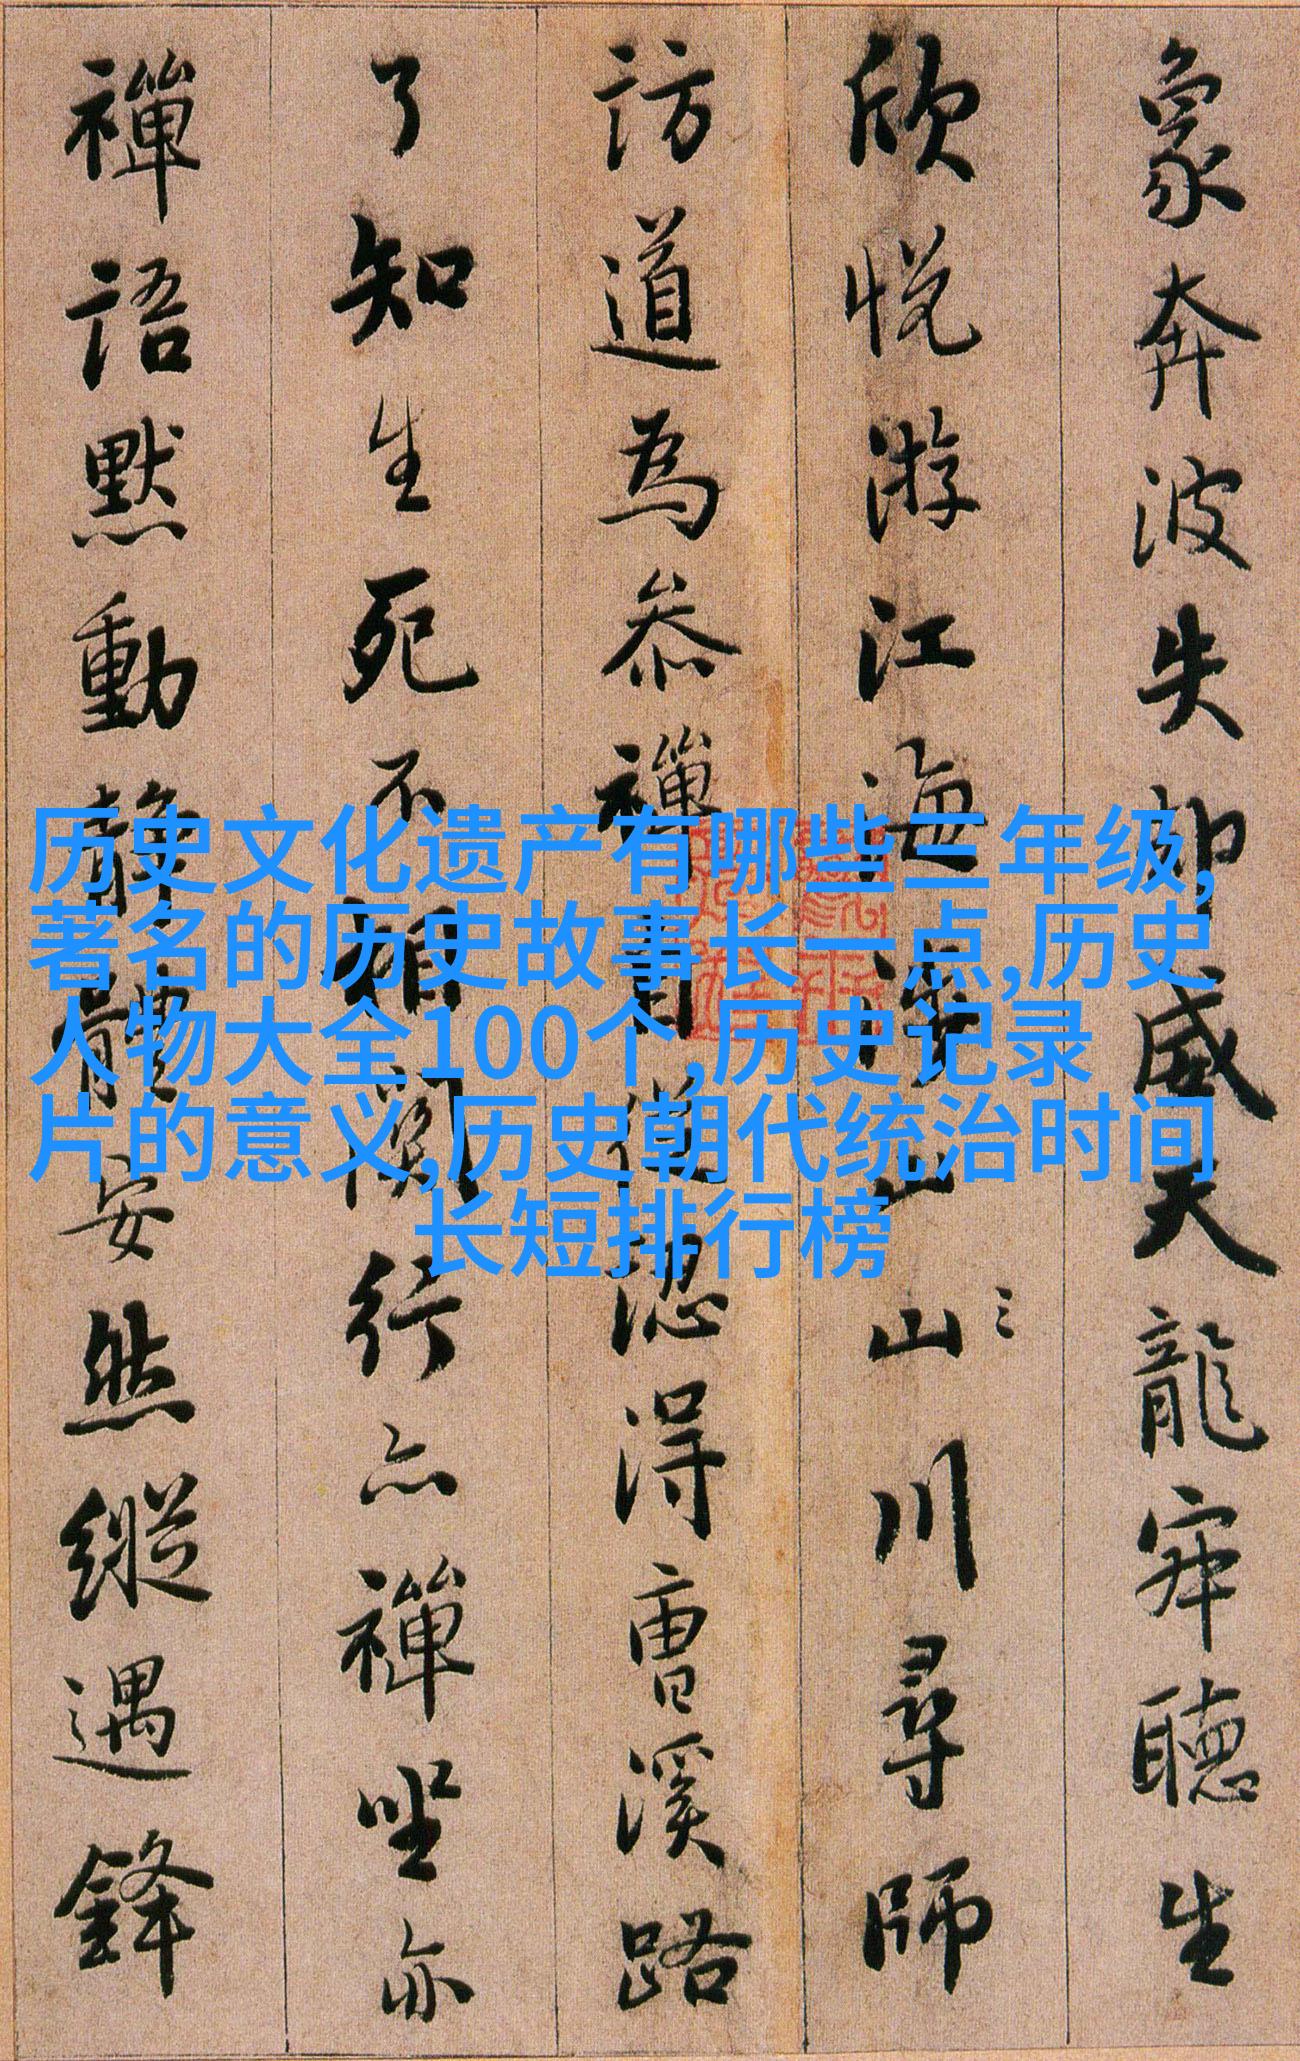 象奔波失却威天龍寂聽生
欣悅游江海涉山川尋師
訪道為叅禪自從認得曹溪路
了知生死不相關行亦禪坐亦
禪語默動靜體安然縱遇鋒
历史文化遗产有哪些三年级,
著名的历史故事长一点,历史
人物大全100个,历史记录
片的意义,历史朝代统治时间
长短排行榜